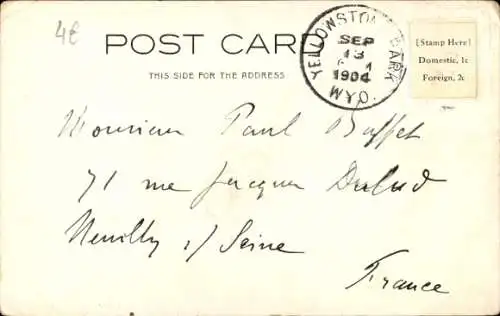 4€
POST CARD
THIS SIDE FOR THE ADDRESS
YELLOWSTONE PARK
SEP
13
1904
WYO.
[Stamp Here]
Domestic, 1c
Foreign, 2c
Monsieur Paul Buffet
71 rue Jacques Dulud
Neuilly s/ Seine
France